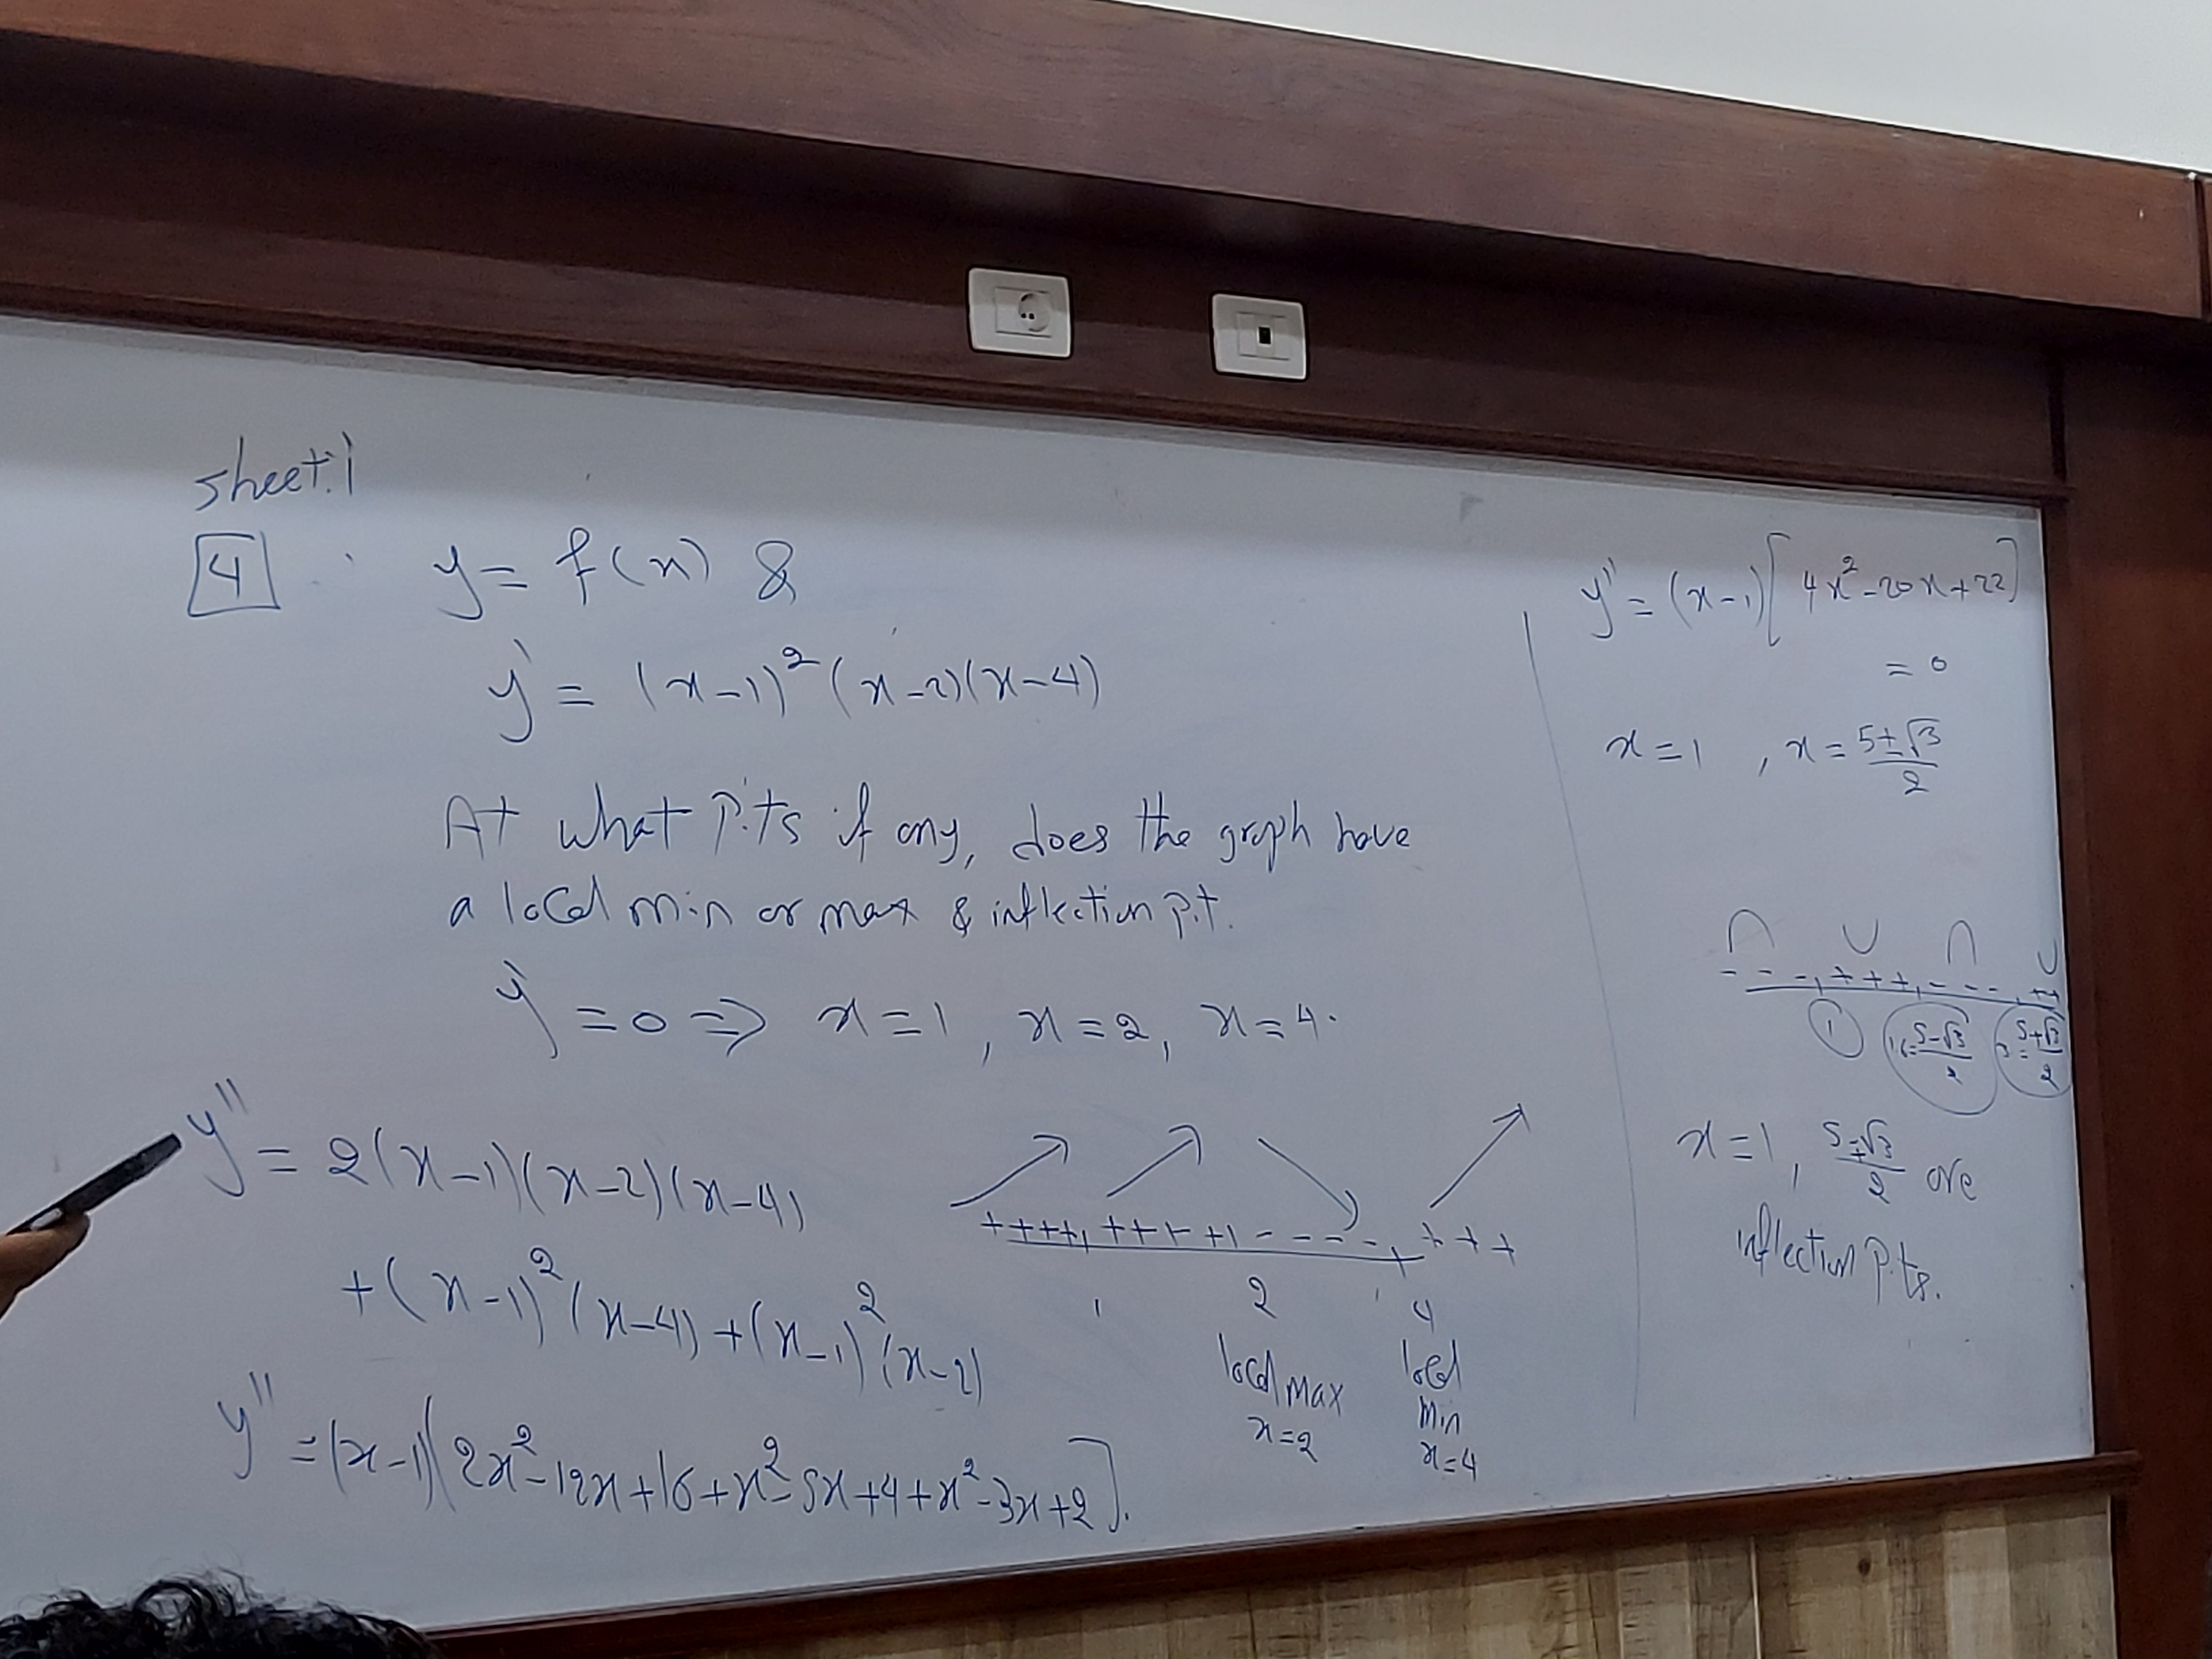 sheet.1
4
y = f(x) &
y' = (x-1)² (x-2)(x-4)
At what P.ts if any, does the graph have
a local min or max & inflection p.t.
y' = 0 ⇒ x = 1, x = 2, x = 4.
y'' = 2(x-1)(x-2)(x-4)
+ (x-1)² (x-4) + (x-1)² (x-2)
y'' = (x-1)[2x²-12x+16+x²-5x+4+x²-3x+2].
++++ ++++ - - - - + + +
1 2 4
local max x=2
local min x=4
y'' = (x-1)[4x²-20x+22]
= 0
x = 1, x = (5±√3)/2
∩ ∪ ∩ ∪
- - - + + + - - - ++
1 (5-√3)/2 (5+√3)/2
x = 1, (5±√3)/2 are
inflection p.ts.